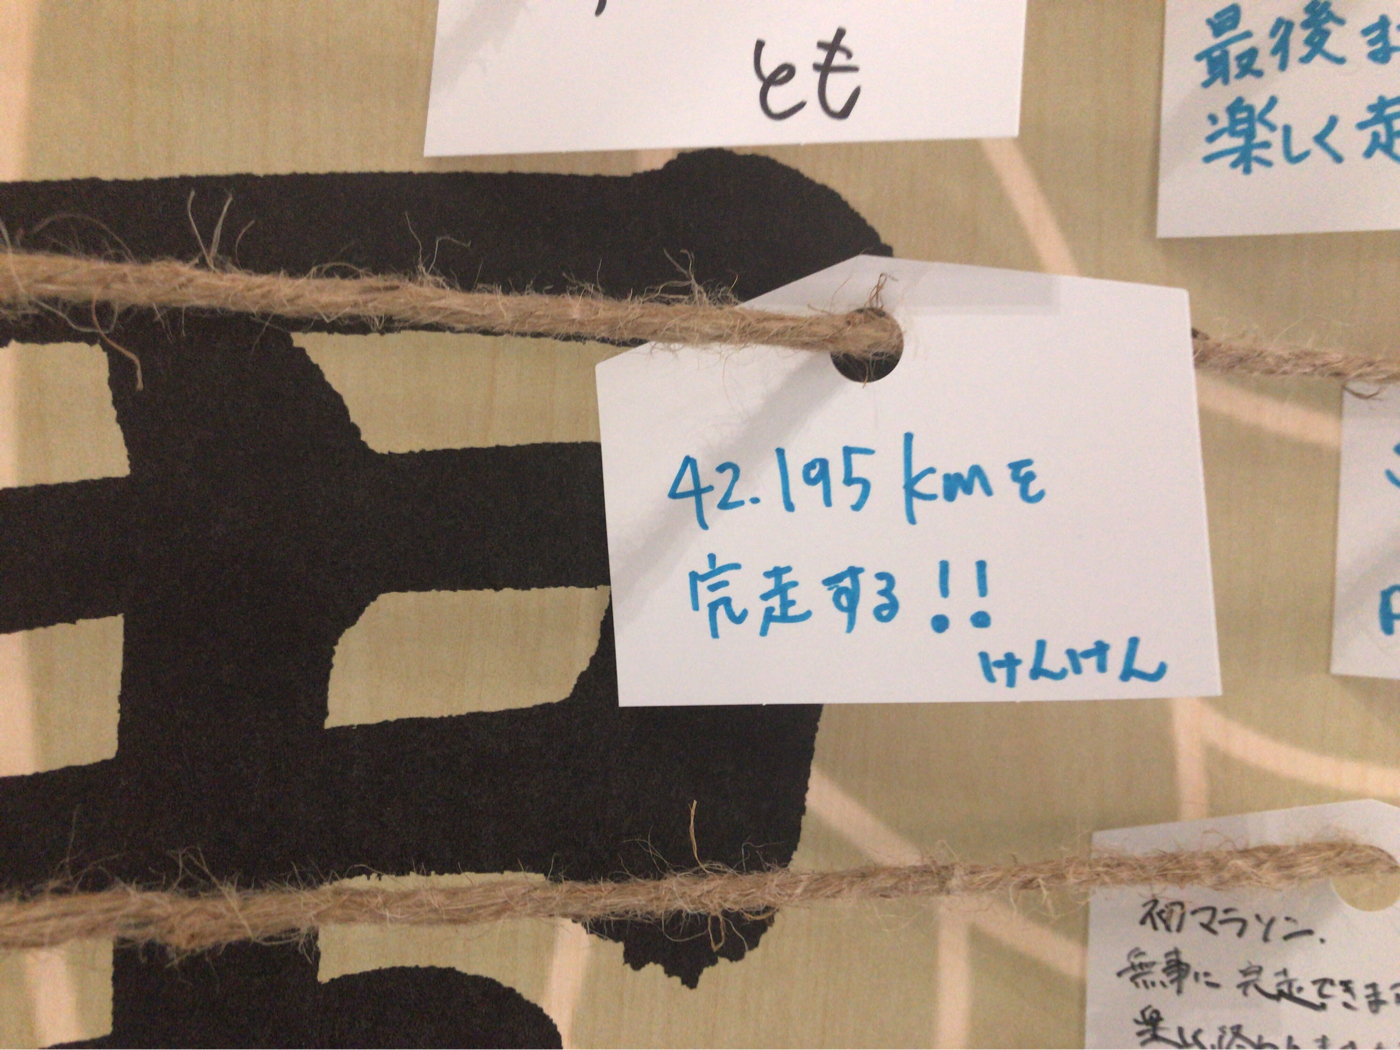 とも
最後ま
楽しく走
42.195kmを
完走する!!
けんけん
初マラソン.
無事に完走できます